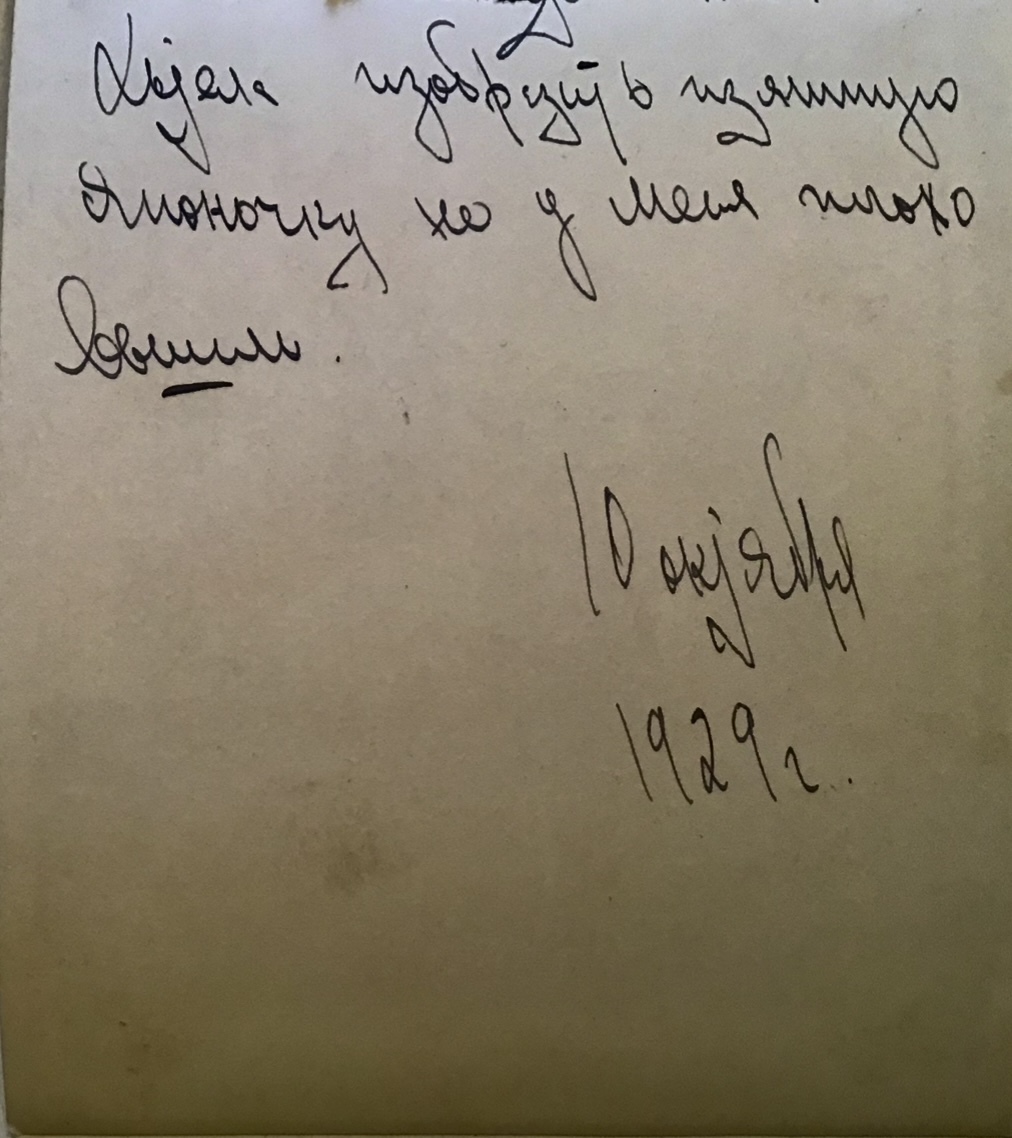 Хотела изобразить изящную
Японочку но у меня плохо
вышло.
10 октября
1929 г.